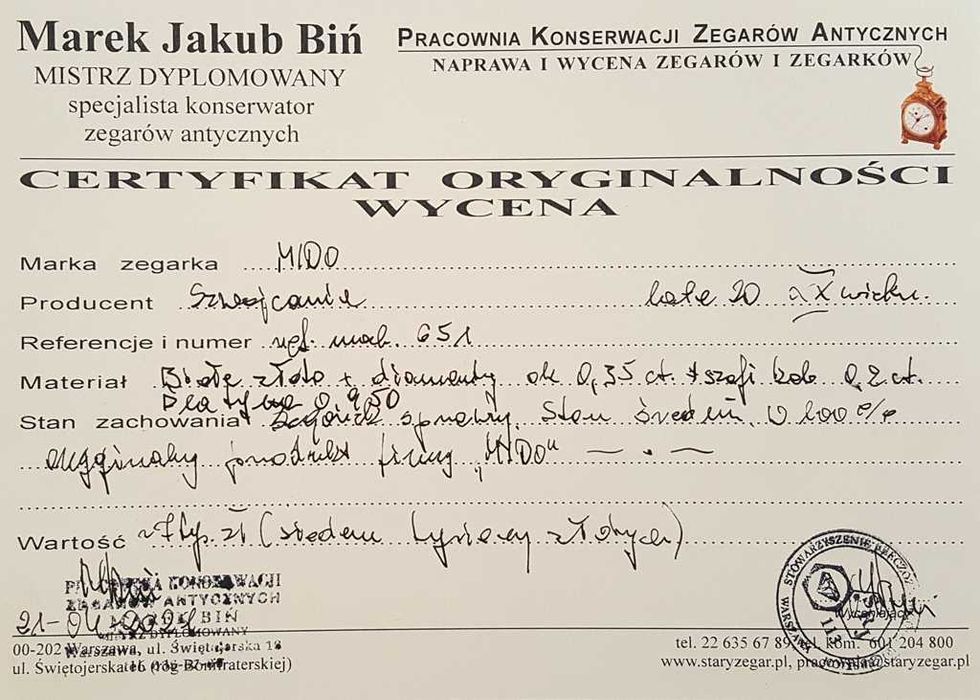 Marek Jakub Biń
MISTRZ DYPLOMOWANY
specjalista konserwator
zegarów antycznych
PRACOWNIA KONSERWACJI ZEGARÓW ANTYCZNYCH
NAPRAWA I WYCENA ZEGARÓW I ZEGARKÓW
CERTYFIKAT ORYGINALNOŚCI
WYCENA
Marka zegarka MIDO
Producent Szwajcaria lata 20 XX wieku.
Referencje i numer ref. 651
Materiał Białe złoto + diamenty ok 0,35 ct. + szafir ok 0,2 ct.
Platyna 0,950
Stan zachowania sprawny, Stan średni, W 100%
oryginalny produkt firmy "MIDO"
Wartość ~7 tyś. zł (siedem tysięcy złotych)
PRACOWNIA KONSERWACJI
ZEGARÓW ANTYCZNYCH
BIŃ
MISTRZ DYPLOMOWANY
Warszawa, ul. Świętojerska
STOWARZYSZENIE
WARSZAWA
00-202 Warszawa, ul. Świętojerska
ul. Świętojerska (róg Bonifraterskiej)
tel. 22 635 67 89, tel. kom. 601 204 800
www.staryzegar.pl, pracownia@staryzegar.pl